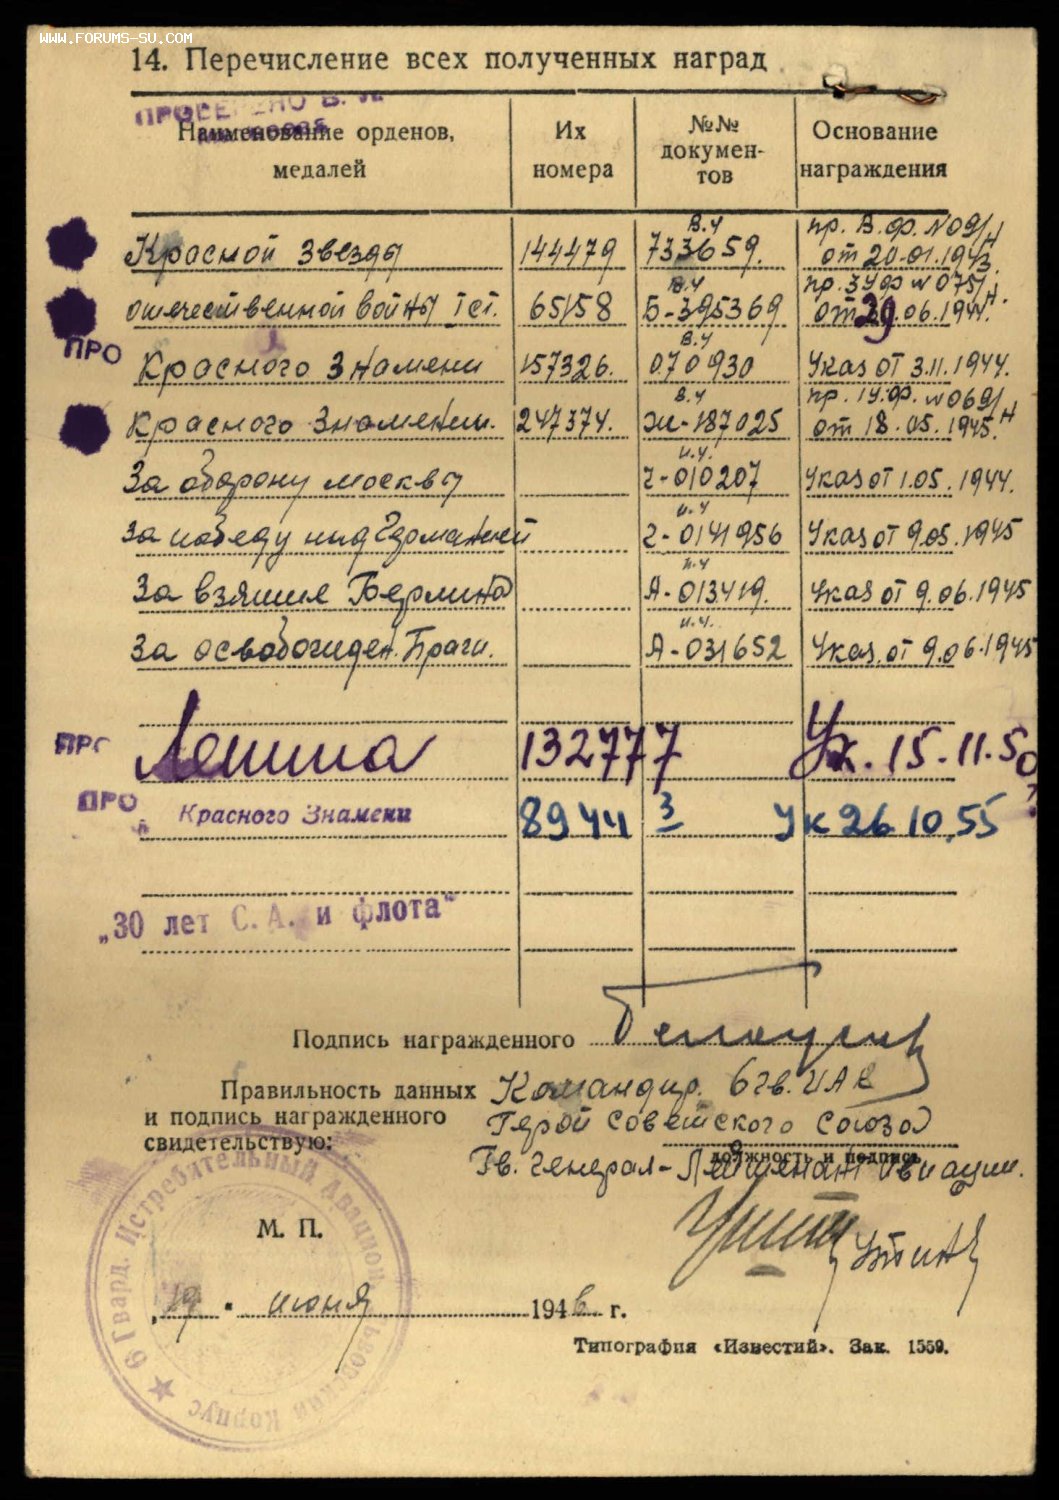 WWW.FORUMS-SU.COM
14. Перечисление всех полученных наград
ПРОВЕРЕНО В.
Наименование орденов, медалей
Их номера
№№ докумен-тов
Основание награждения
Красной Звезды 144479 В.Ч 733659. пр. В.Ф. №09/Н от 20.01.1943.
отечественной войны I ст. 65158 В.Ч Б-395369 пр. 3 УФ №075/Н. от 29.06.1944.
ПРО
Красного Знамени 157326. В.Ч 070930 Указ от 3.11.1944.
Красного Знамени. 247374. В.Ч Ж-187025 пр. 1У.Ф. №069/Н от 18.05.1945.
За оборону москвы и.ч. Ч-010207 Указ от 1.05.1944.
За победу над Германией и.ч Г-0141956 Указ от 9.05.1945
За взятие Берлина и.ч А-013419. Указ от 9.06.1945
За освобожден. Праги. и.ч. А-031652 Указ. от 9.06.1945
ПРО Ленина 132777 Ук. 15.11.50
ПРО Красного Знамени 8944 3 Ук 26.10.55
„30 лет С. А. и флота"
Подпись награжденного
Правильность данных и подпись награжденного свидетельствую:
Командир. 6 гв. ИАК
Герой Советского Союза
должность и подпись
Гв. Генерал-Лейтенант Авиации.
Утин
М. П.
„19" июня 1946 г.
Типография «Известий». Зак. 1559.
6 Гвард. Истребительный Авиацион. Львовский Корпус